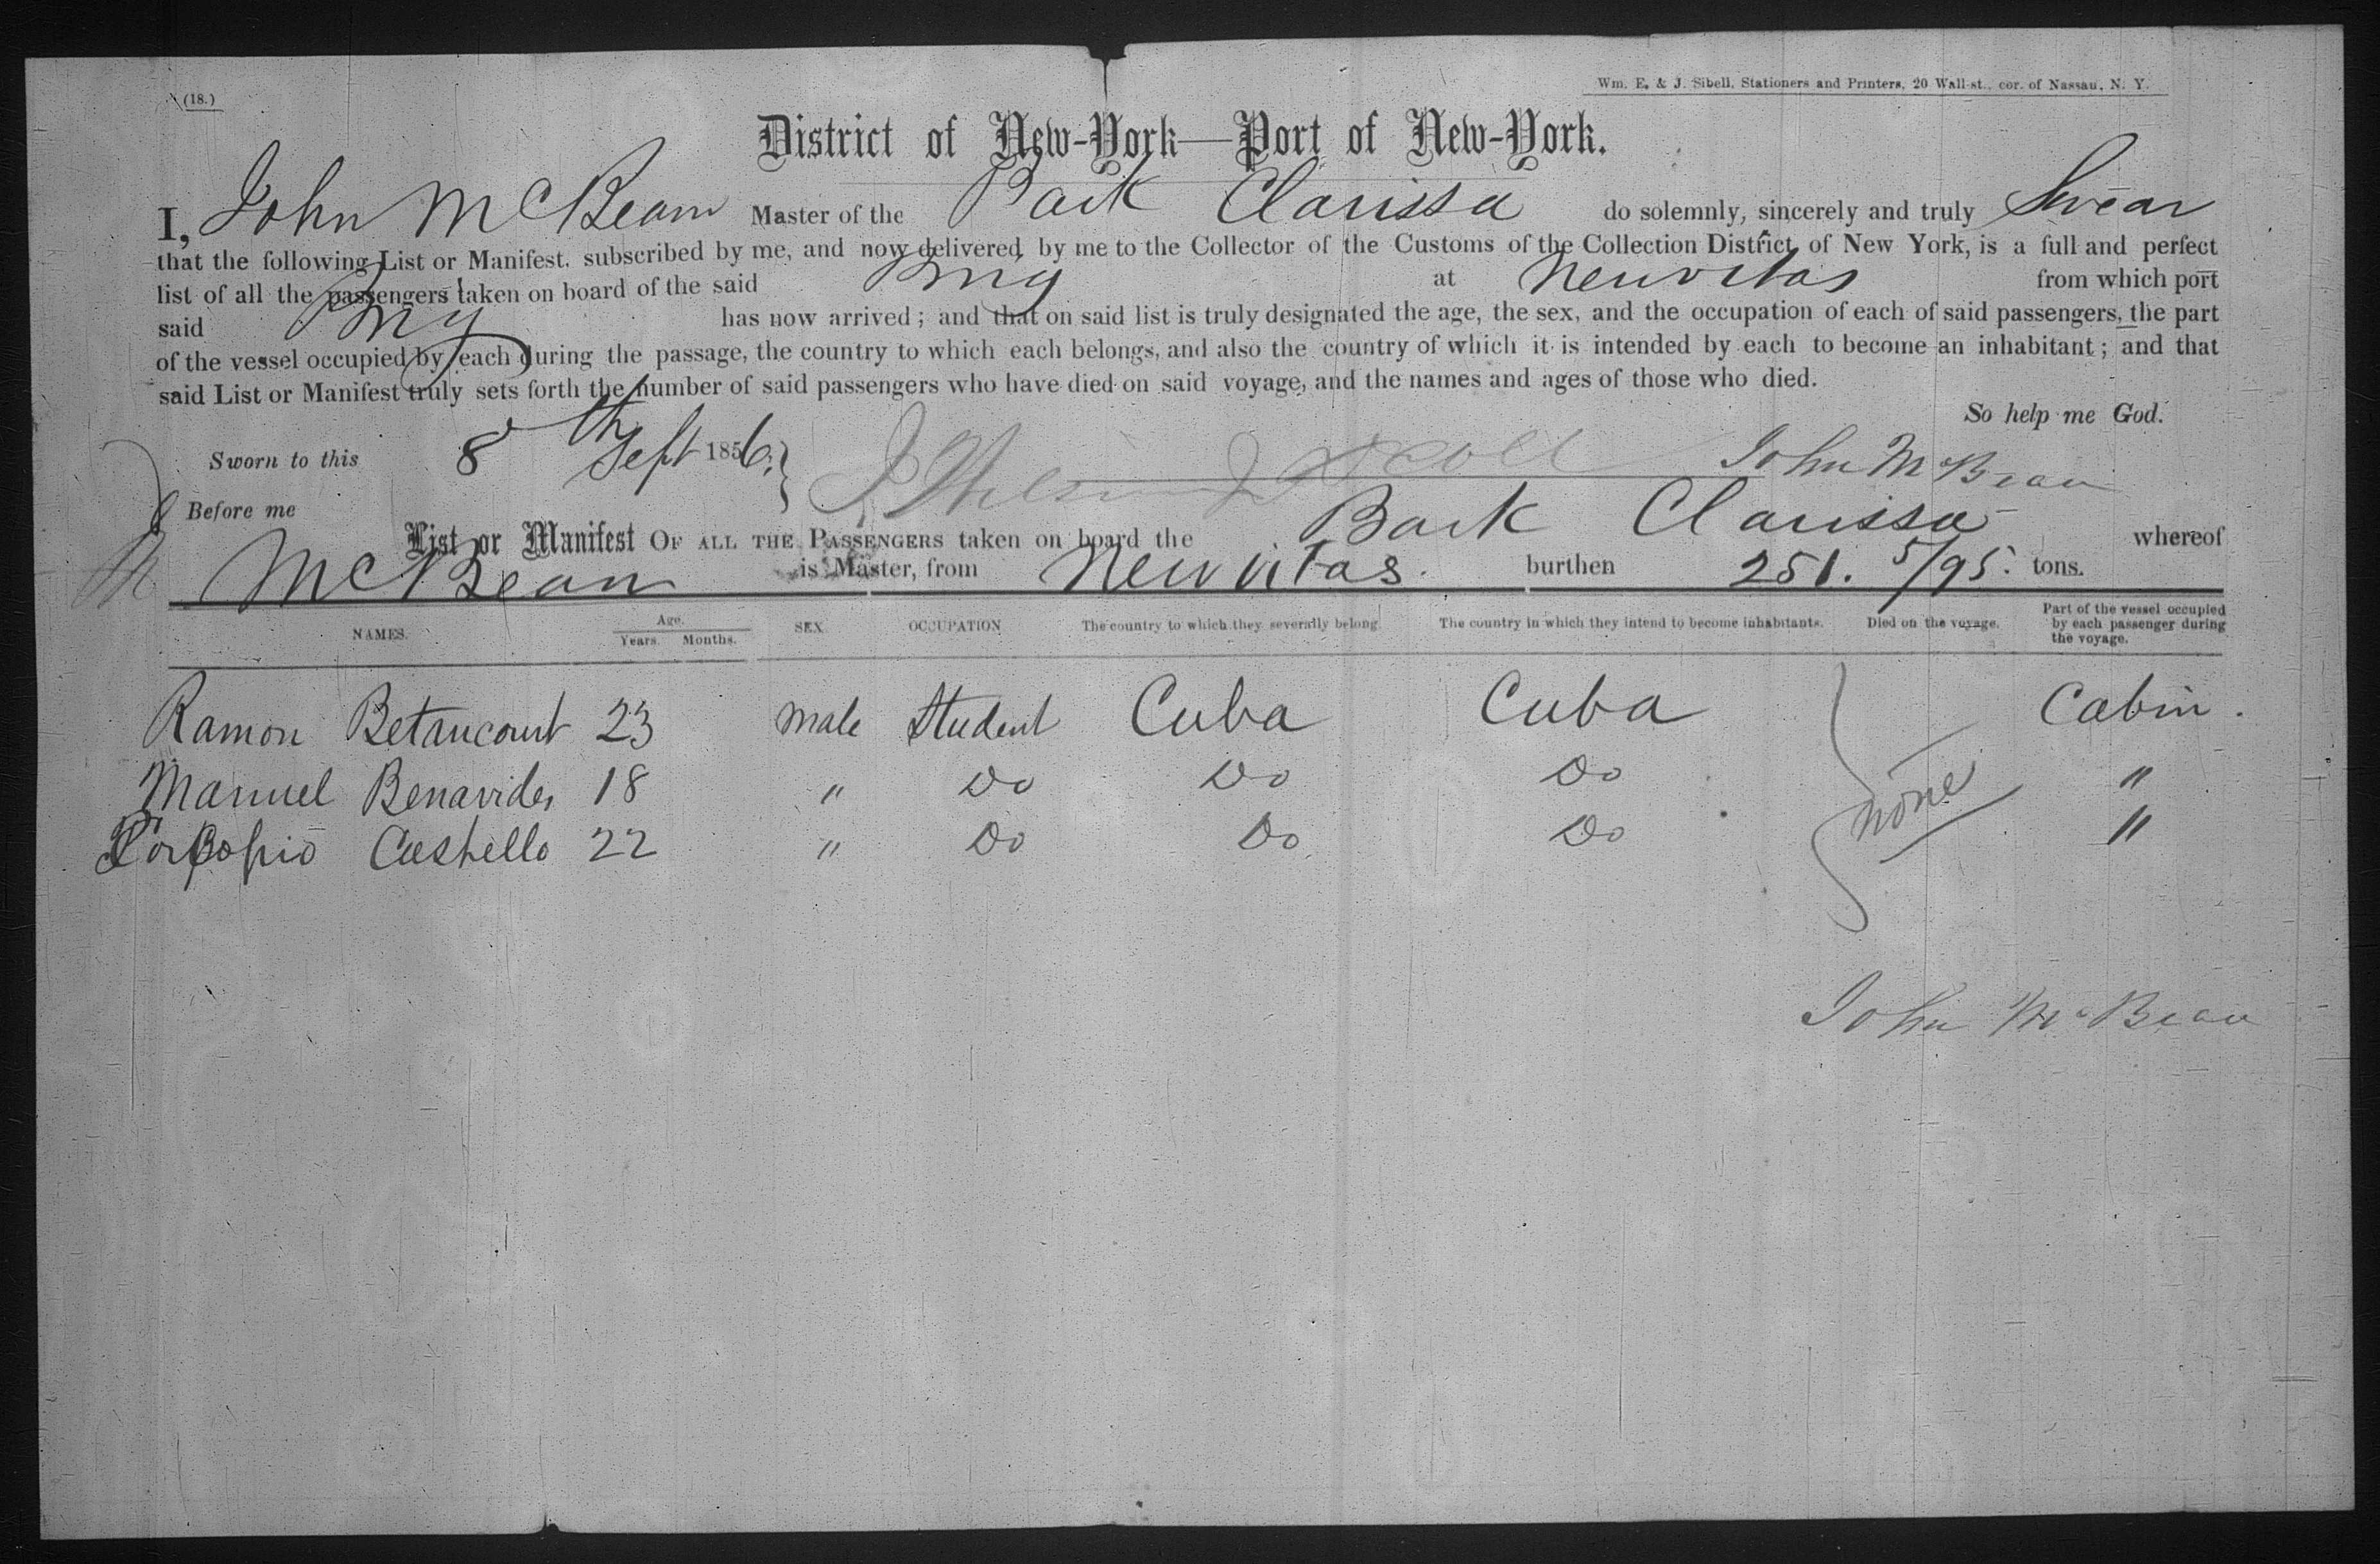 (18.)
Wm. E. & J. Sibell, Stationers and Printers, 20 Wall-st., cor. of Nassau, N. Y.
District of New-York—Port of New-York.
I, John McBean Master of the Bark Clarissa do solemnly, sincerely and truly Swear
that the following List or Manifest, subscribed by me, and now delivered by me to the Collector of the Customs of the Collection District of New York, is a full and perfect
list of all the passengers taken on board of the said Brig at Neuvitas from which port
said Brig has now arrived; and that on said list is truly designated the age, the sex, and the occupation of each of said passengers, the part
of the vessel occupied by each during the passage, the country to which each belongs, and also the country of which it is intended by each to become an inhabitant; and that
said List or Manifest truly sets forth the number of said passengers who have died on said voyage, and the names and ages of those who died.
So help me God.
Sworn to this 8th Sept 1856. John McBean
Before me
List or Manifest OF ALL THE PASSENGERS taken on board the Bark Clarissa whereof
McBean is Master, from Neuvitas. burthen 251. 5/95. tons.
NAMES. Age. Years. Months. SEX. OCCUPATION The country to which they severally belong. The country in which they intend to become inhabitants. Died on the voyage. Part of the vessel occupied by each passenger during the voyage.
Ramon Betancourt 23 male Student Cuba Cuba Cabin.
Manuel Benavides 18 " Do Do Do none "
Castello 22 " Do Do Do "
John McBean